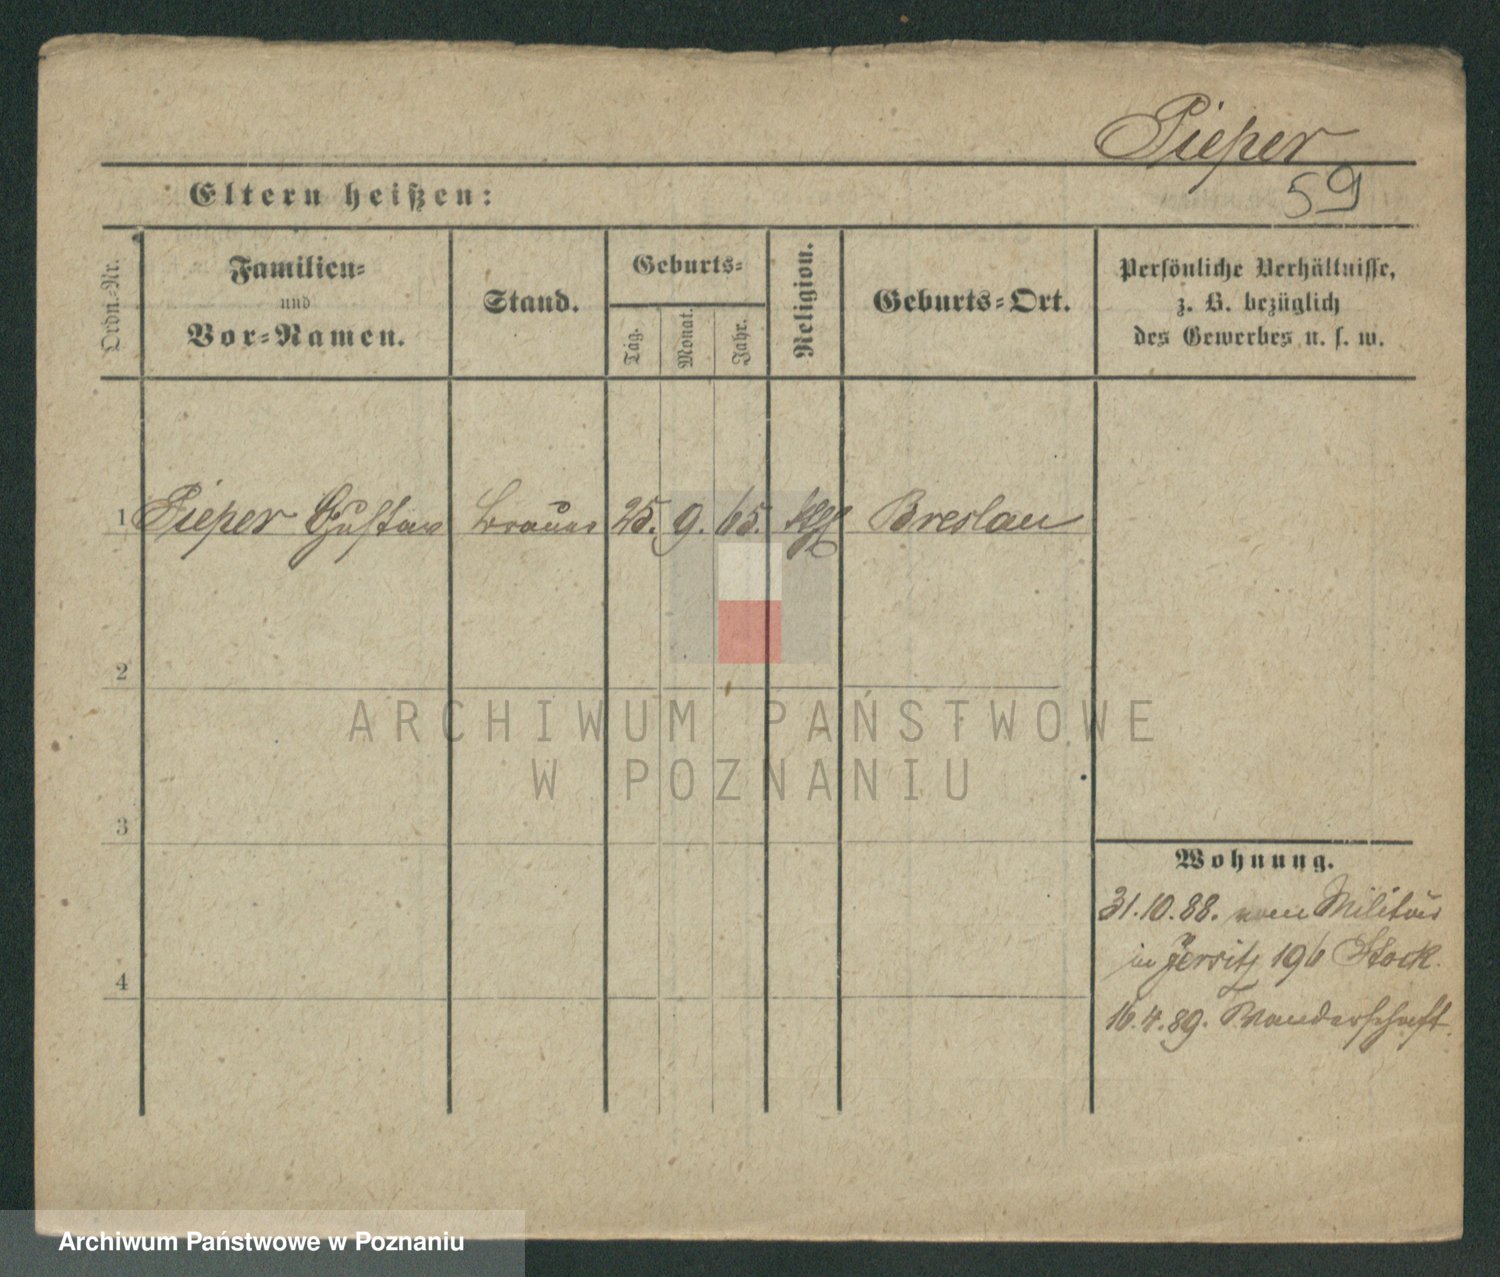 Pieper
59
Eltern heißen:
Ordn.-Nr.
Familien-
und
Vor-Namen.
Stand.
Geburts-
Tag.
Monat.
Jahr.
Religion.
Geburts-Ort.
Persönliche Verhältnisse,
z. B. bezüglich
des Gewerbes u. s. w.
1 Pieper Gustav Brauer 25. 9. 65. Breslau
2
ARCHIWUM PAŃSTWOWE
W POZNANIU
3
Wohnung.
31.10.88. vom Militär
in Jersitz 196 Stock.
4
16.4.89. Wanderschaft.
Archiwum Państwowe w Poznaniu